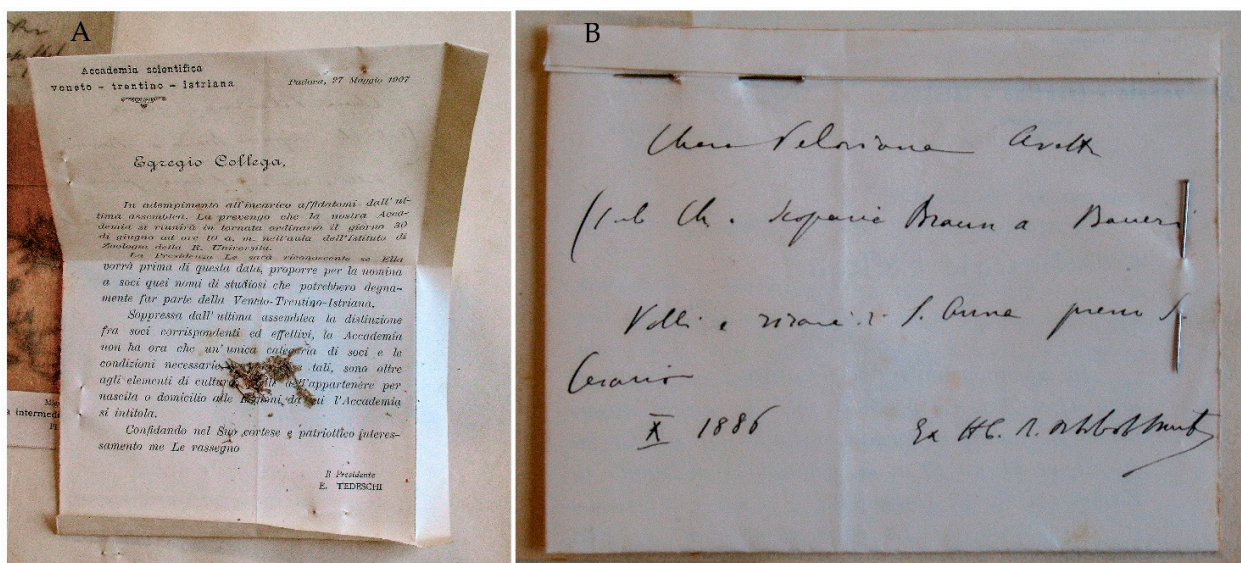 A
Accademia scientifica
veneto - trentino - istriana
Padova, 27 Maggio 1907
Egregio Collega,
In adempimento all'incarico affidatomi dall'ul-
tima assemblea. La prevengo che la nostra Acca-
demia si riunirà in tornata ordinaria il giorno 30
di giugno ad ore 10 a. m. nell'aula dell'Istituto di
Zoologia della R. Università.
La Presidenza Le sarà riconoscente se Ella
vorrà prima di questa data, proporre per la nomina
a soci quei nomi di studiosi che potrebbero degna-
mente far parte della Veneto-Trentino-Istriana.
Soppressa dall'ultima assemblea la distinzione
fra soci corrispondenti ed effettivi, la Accademia
non ha ora che un'unica categoria di soci e le
condizioni necessarie tali, sono oltre
agli elementi di cultura, dell'appartenere per
nascita o domicilio alle regioni da cui l'Accademia
si intitola.
Confidando nel Suo cortese e patriottico interes-
samento me Le rassegno
Il Presidente
E. TEDESCHI
a intermed
B
Chara
(sub Ch. scoparia Braun a Baueri
Valli e risaie di S. Anna presso S.
X 1886
Ex Hb.